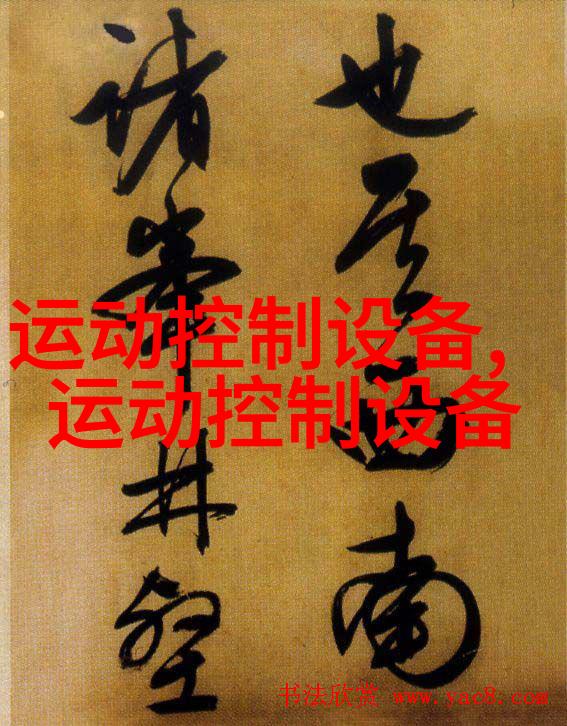 也其西南
諸峯林壑
运动控制设备,
运动控制设备
书法欣赏 www.yac8.com